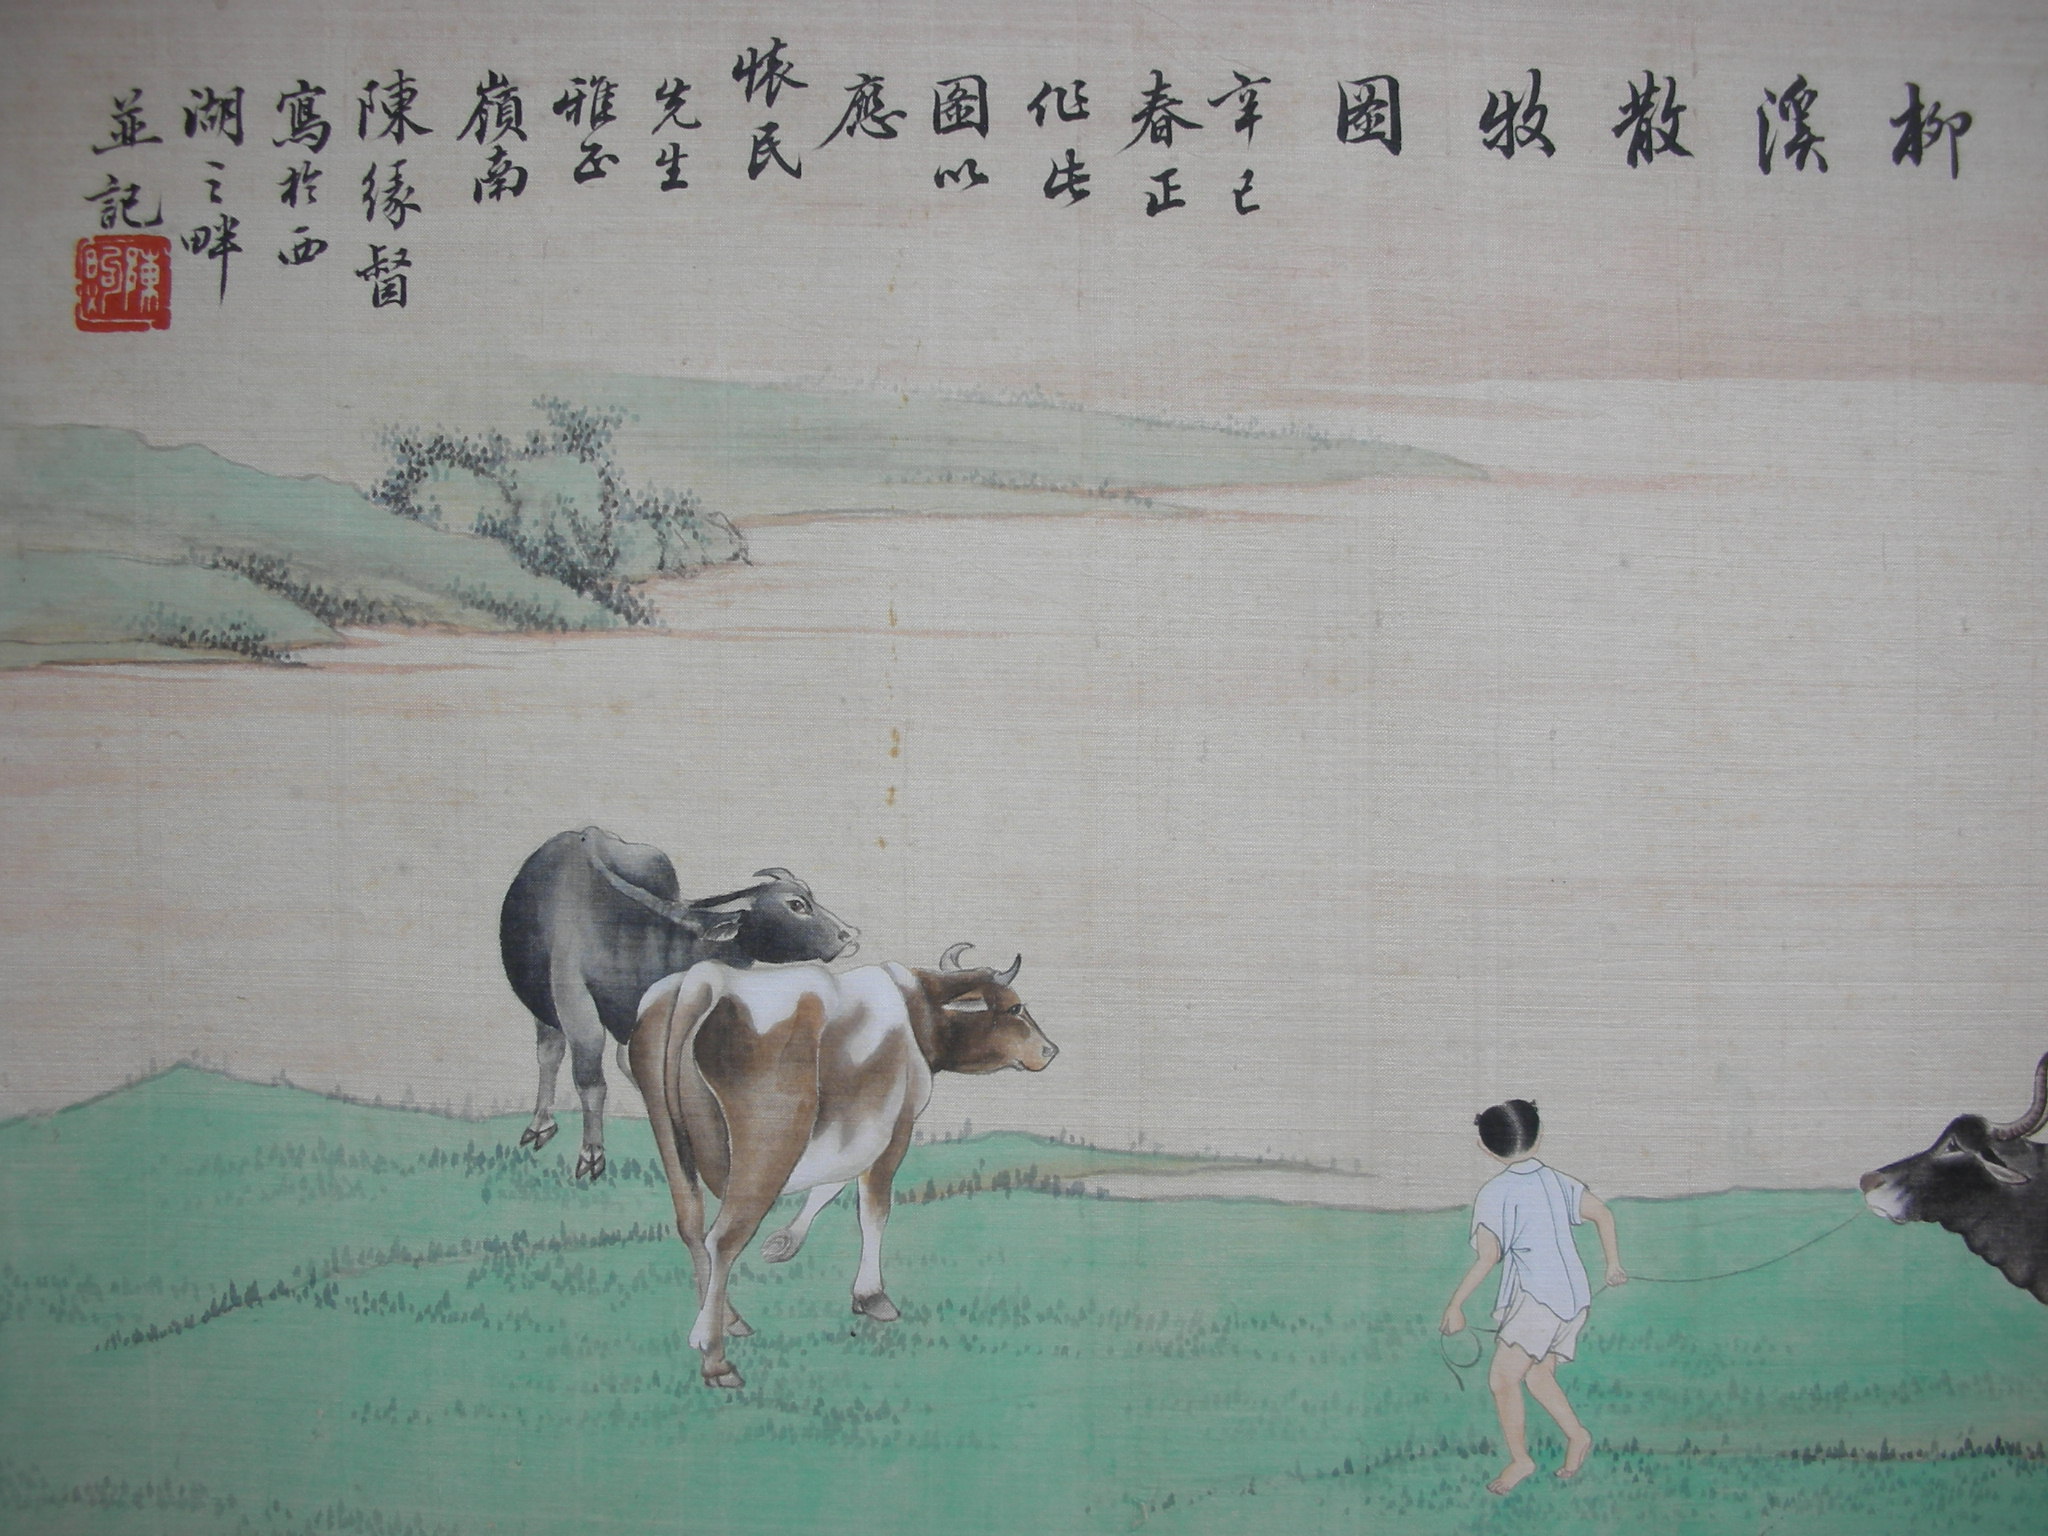 柳溪散牧圖
辛巳
春正
作此
圖以
應
懷民
先生
雅正
嶺南
陳緣督
寫於西
湖之畔
並記
陳煦